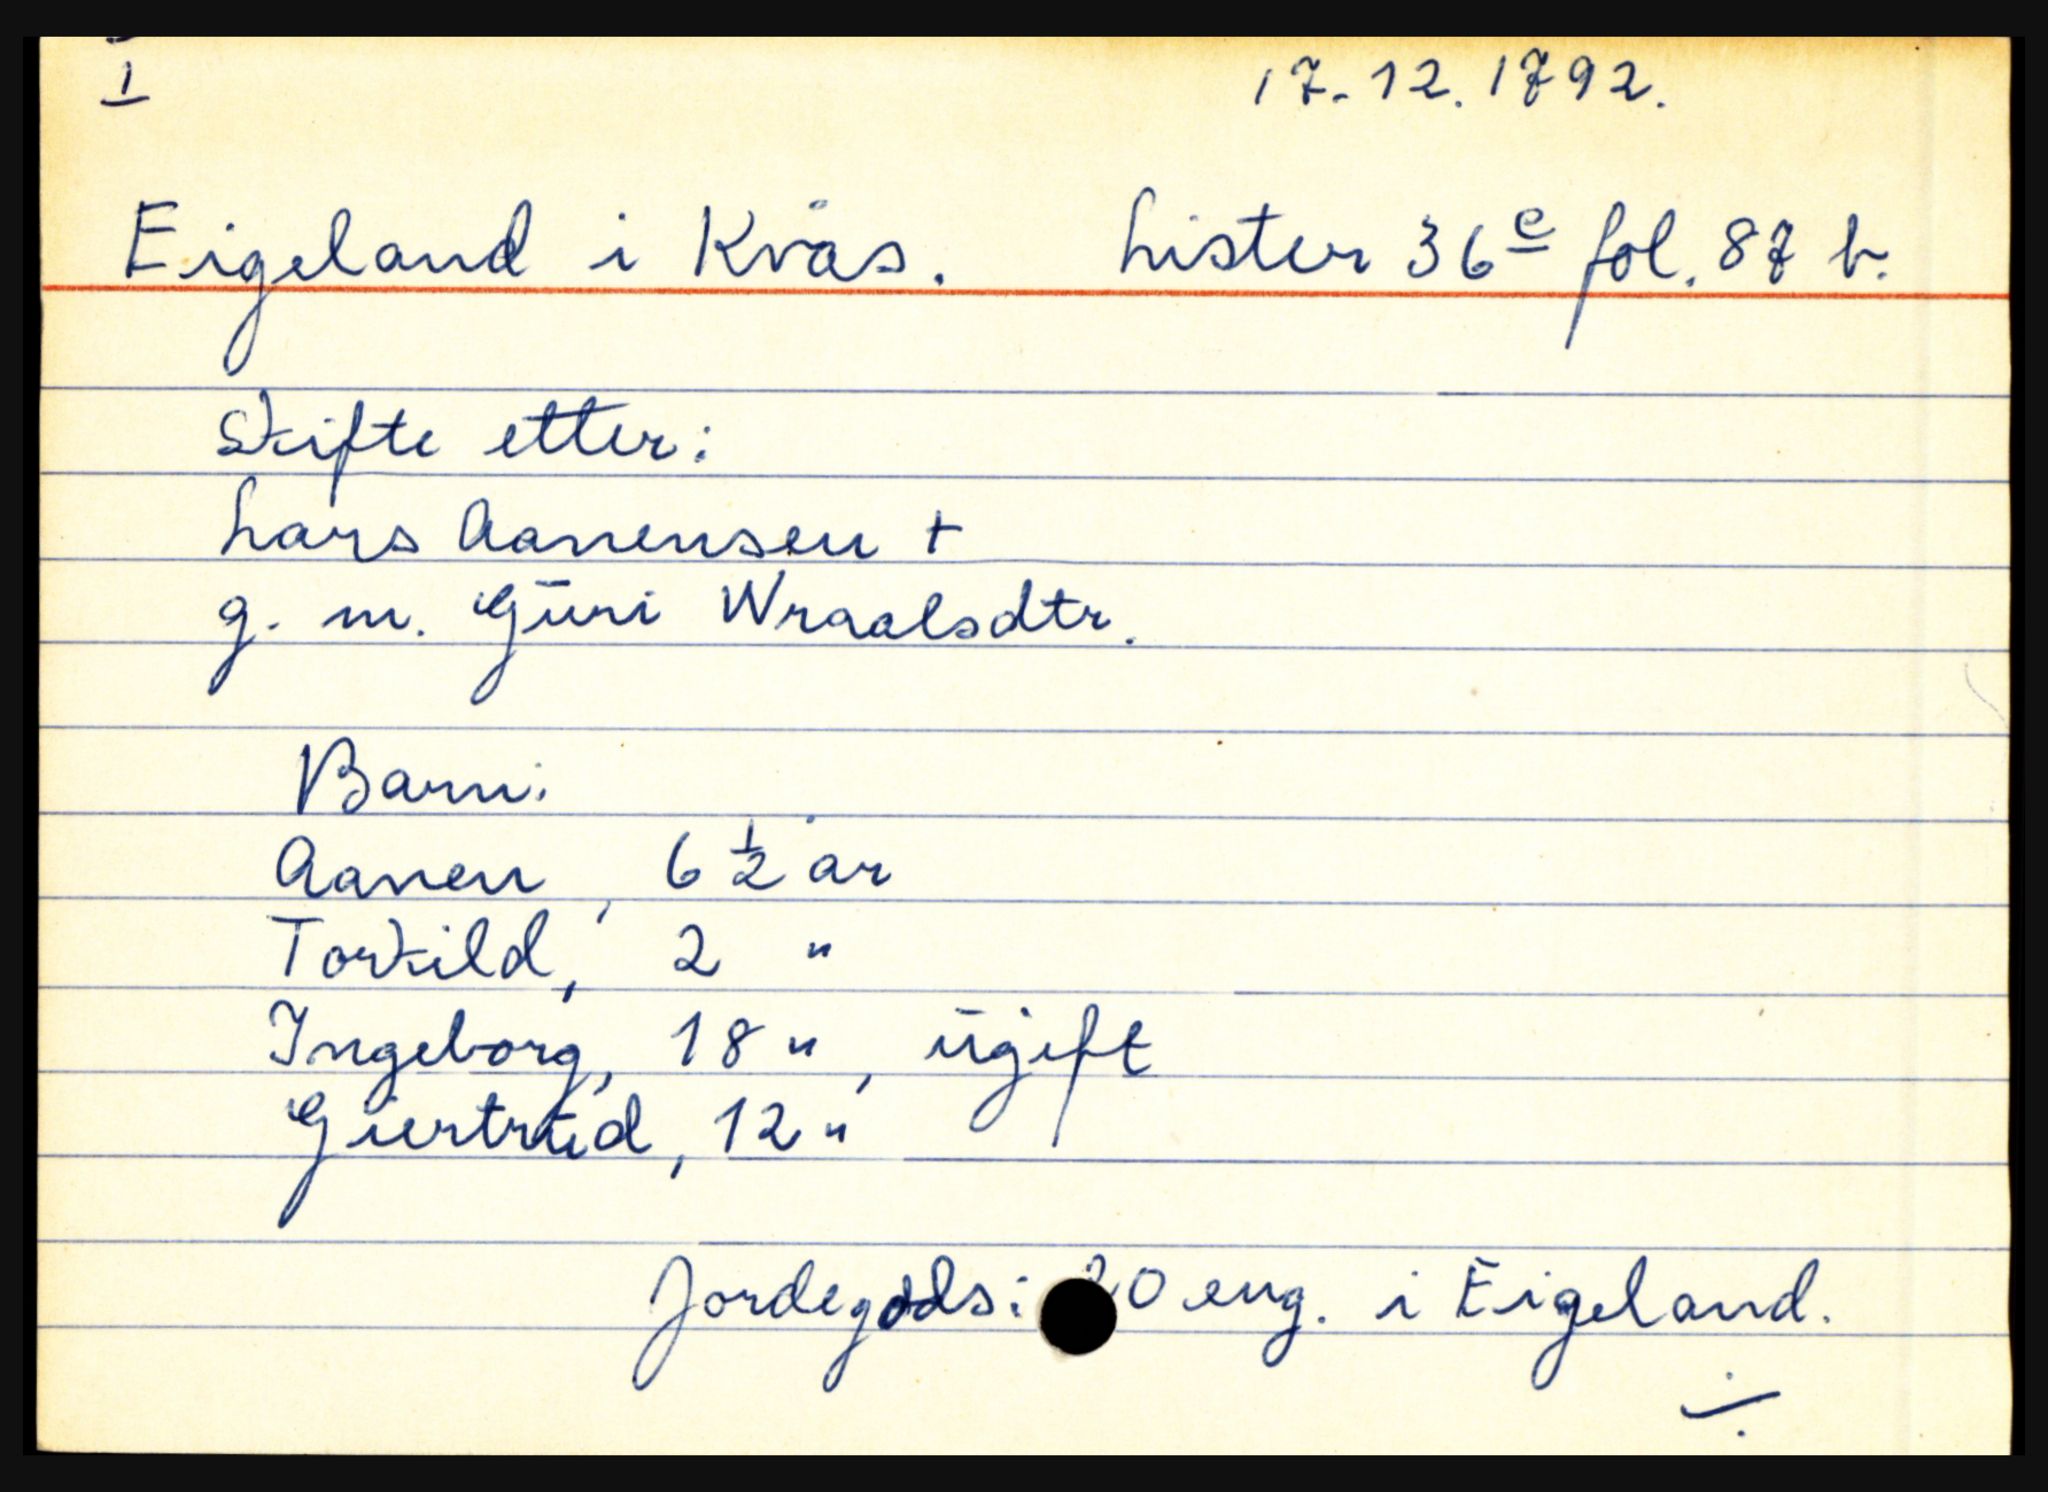 I 17-12.1792.
Eigeland i Kvås. Lister 36e fol. 87 b.
Skifte etter:
Lars Aanensen +
g. m. Guri Wraalsdtr.
Barn:
Aanen, 6 ½ år
Torkild, 2 "
Ingeborg, 18 ", ugift
Giertrud, 12 "
Jordegods: eng. i Eigeland.